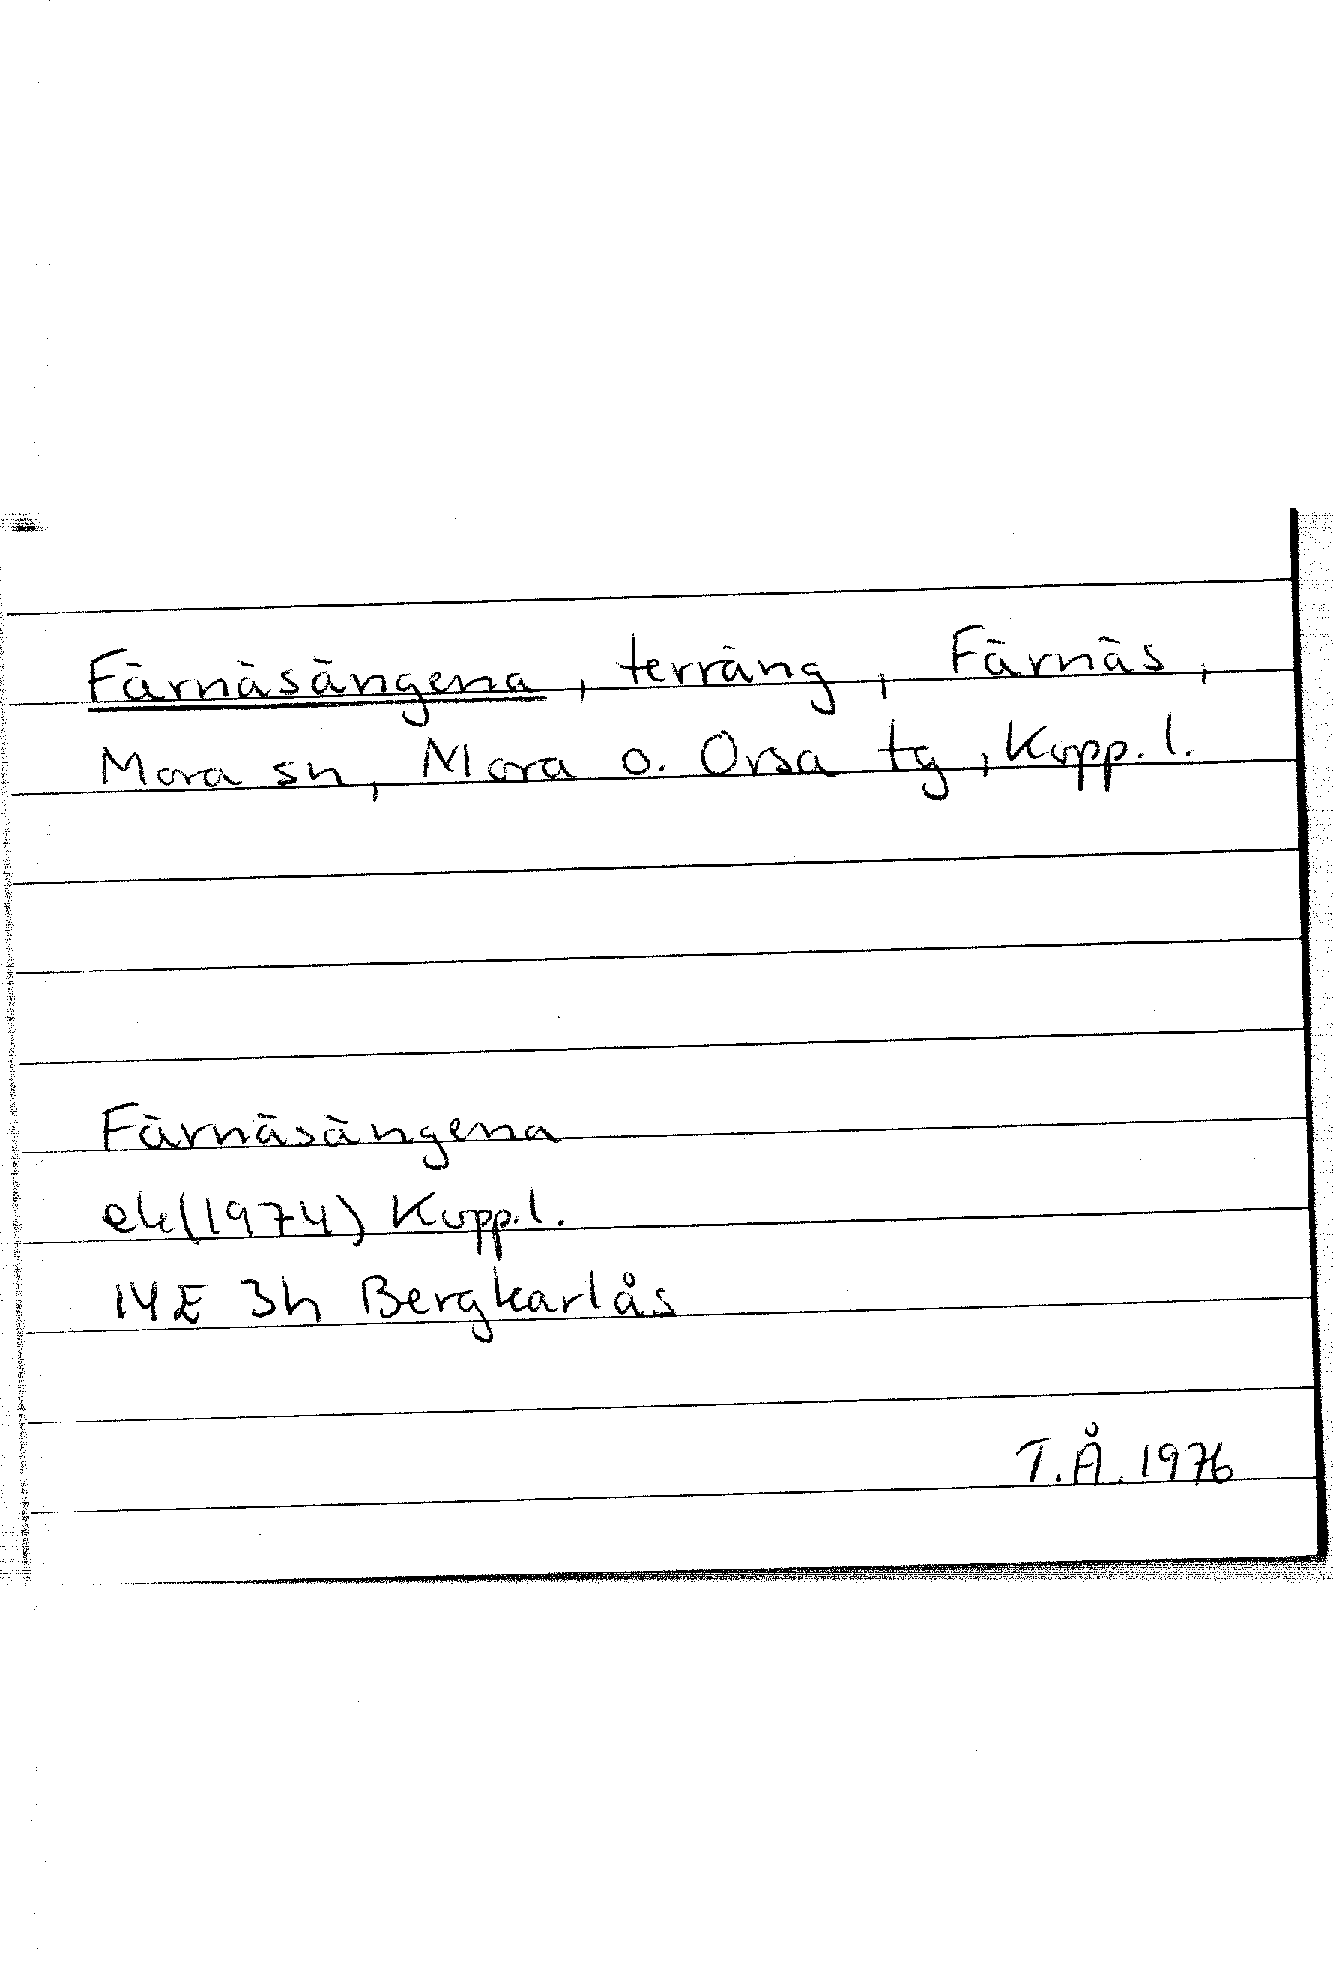 Färnäsängena, terräng, Färnäs,
Mora sn, Mora o. Orsa tg, Kopp.l.
Färnäsängena
ek(1974) Kopp.l.
14E 3h Bergkarlås
T.Å. 1976